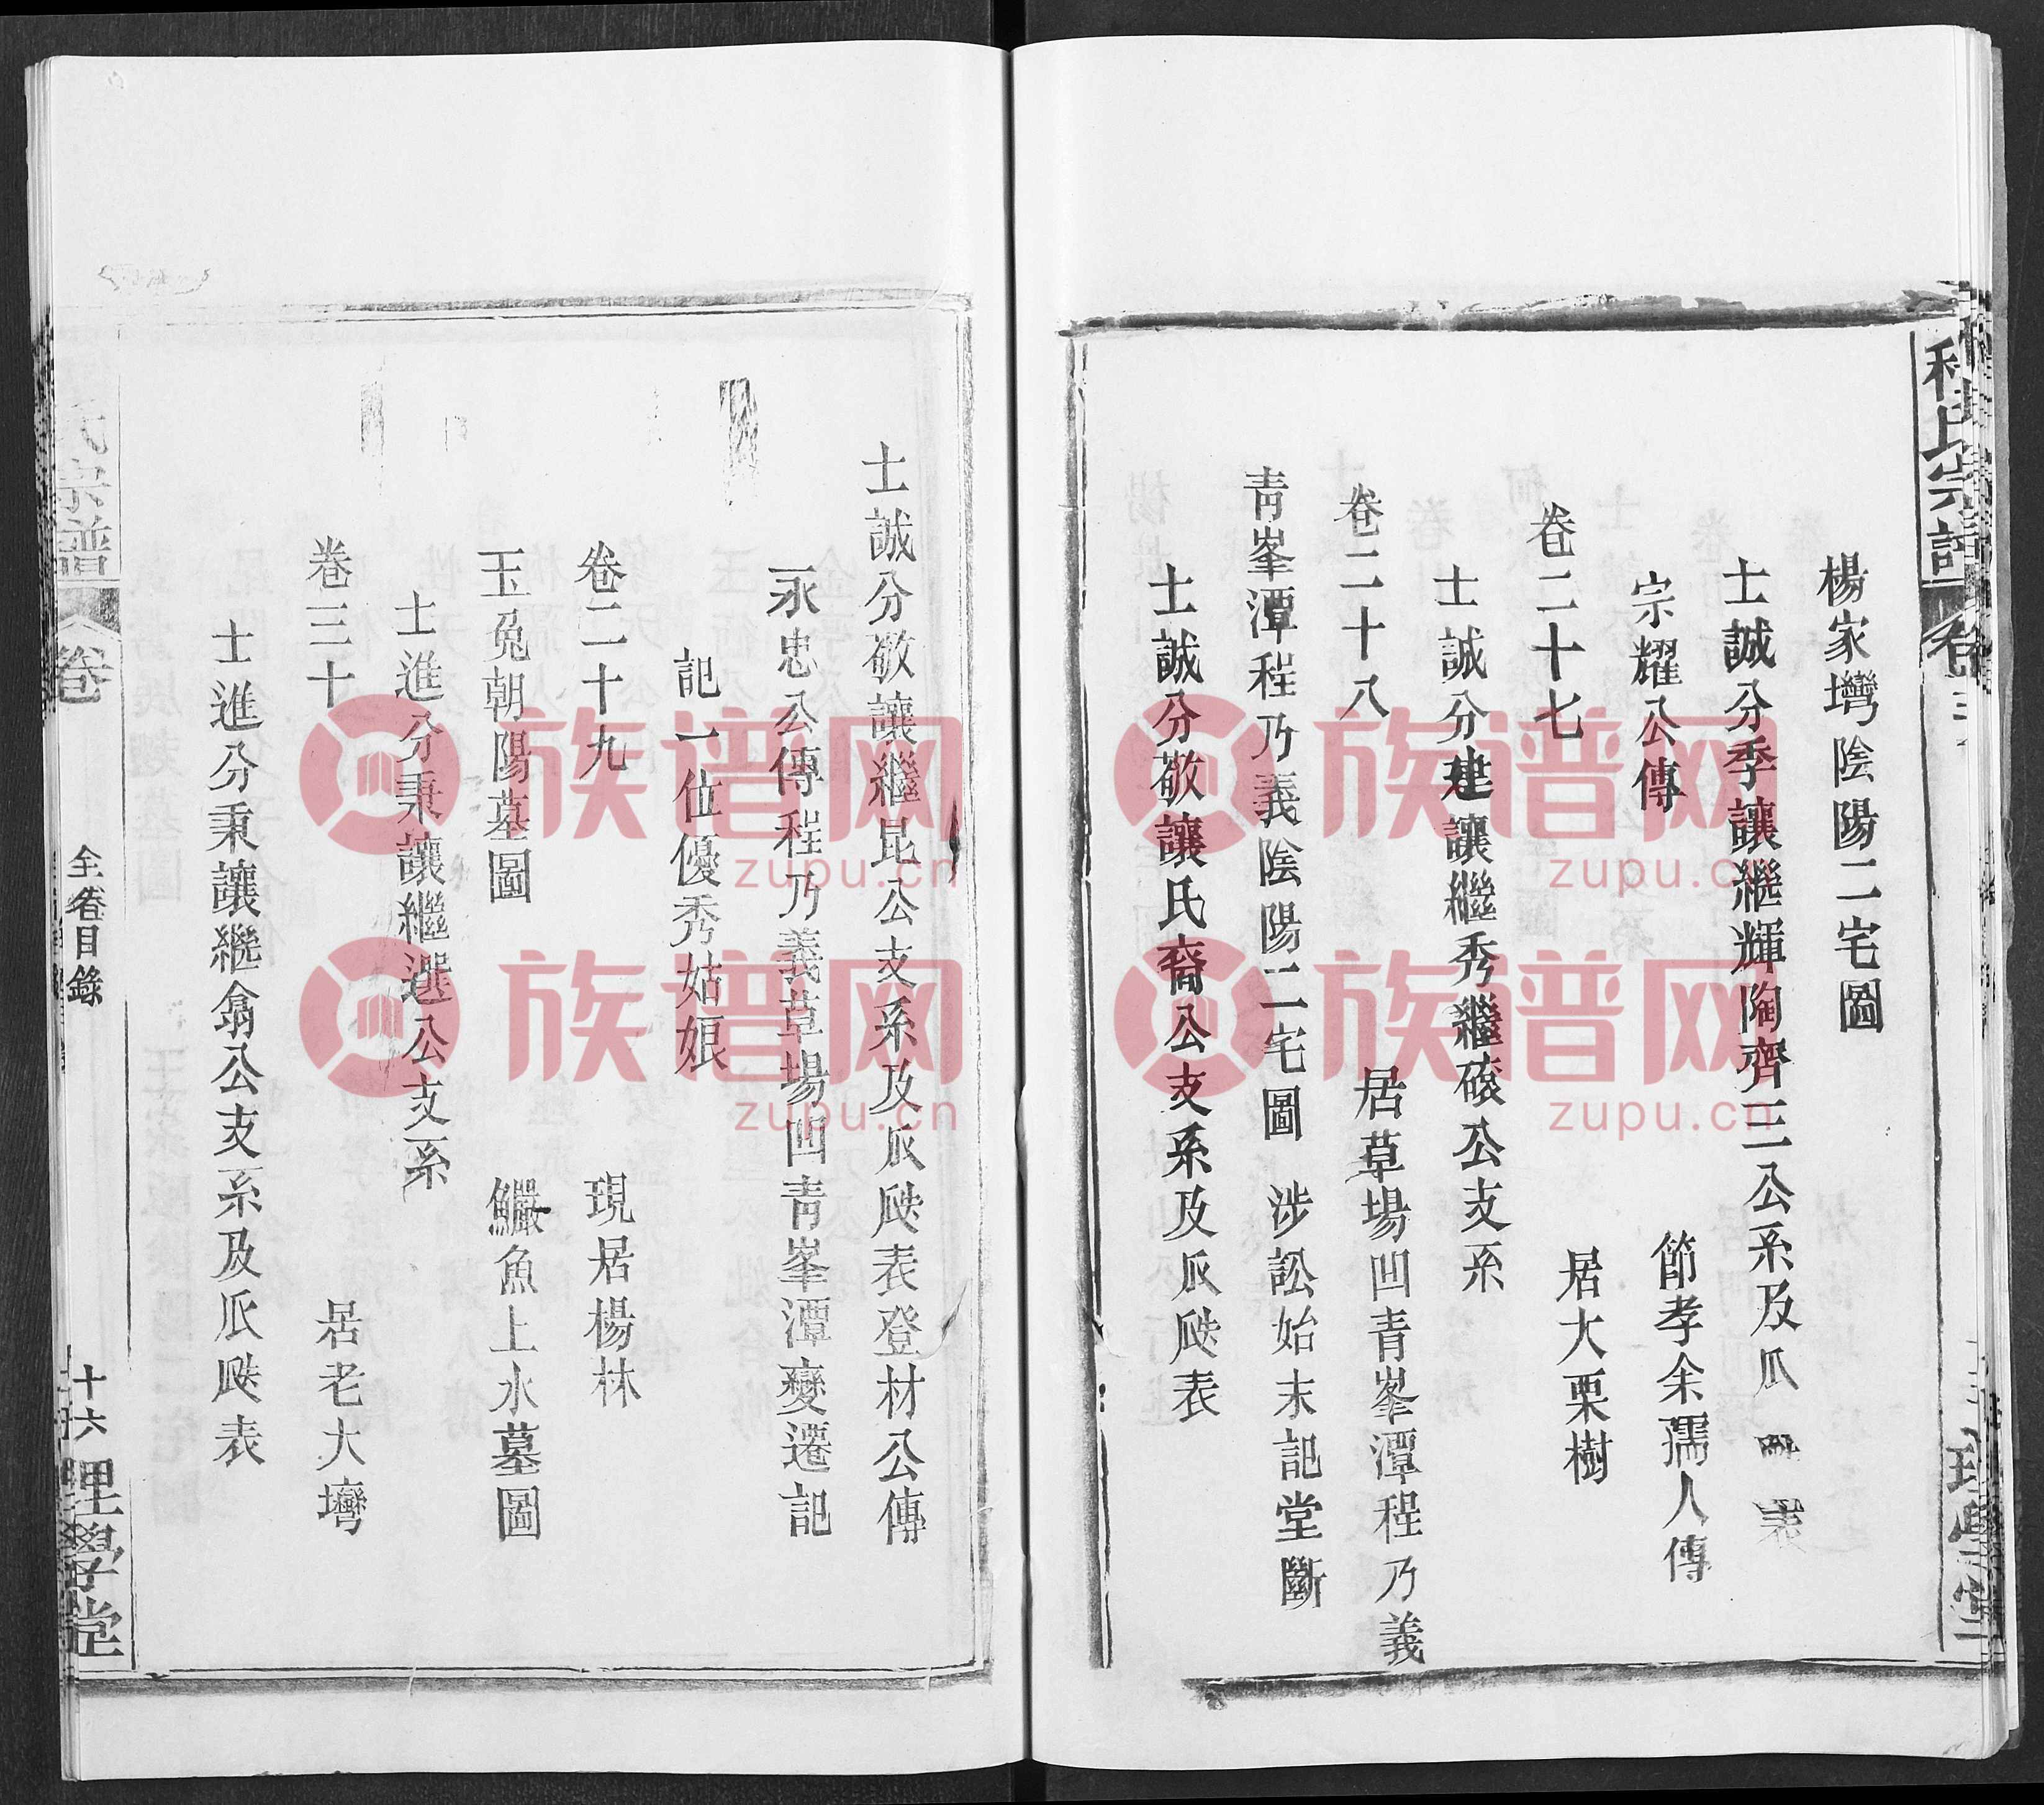 程氏宗譜 卷 理學堂
楊家壪陰陽二宅圖
士誠分季讓繼輝陶齊三公系及瓜瓞表
宗耀公傳 節孝余孺人傳
卷二十七 居大栗樹
士誠分建讓繼秀繼磙公支系
卷二十八 居草場凹青峯潭程乃義
青峯潭程乃義陰陽二宅圖 涉訟始末記堂斷
士誠分敬讓氏裔公支系及瓜瓞表
士誠分敬讓繼昆公支系及瓜瓞表登材公傳
永忠公傳程乃義草場凹青峯潭變遷記
記一位優秀姑娘
卷二十九 現居楊林
玉兔朝陽墓圖 鱺魚上水墓圖
士進分秉讓繼選公支系
卷三十 居老大壪
士進分秉讓繼翕公支系及瓜瓞表
氏宗譜 卷 全卷目錄 十六 理學堂
族谱网
zupu.cn
族谱网
zupu.cn
族谱网
zupu.cn
族谱网
zupu.cn